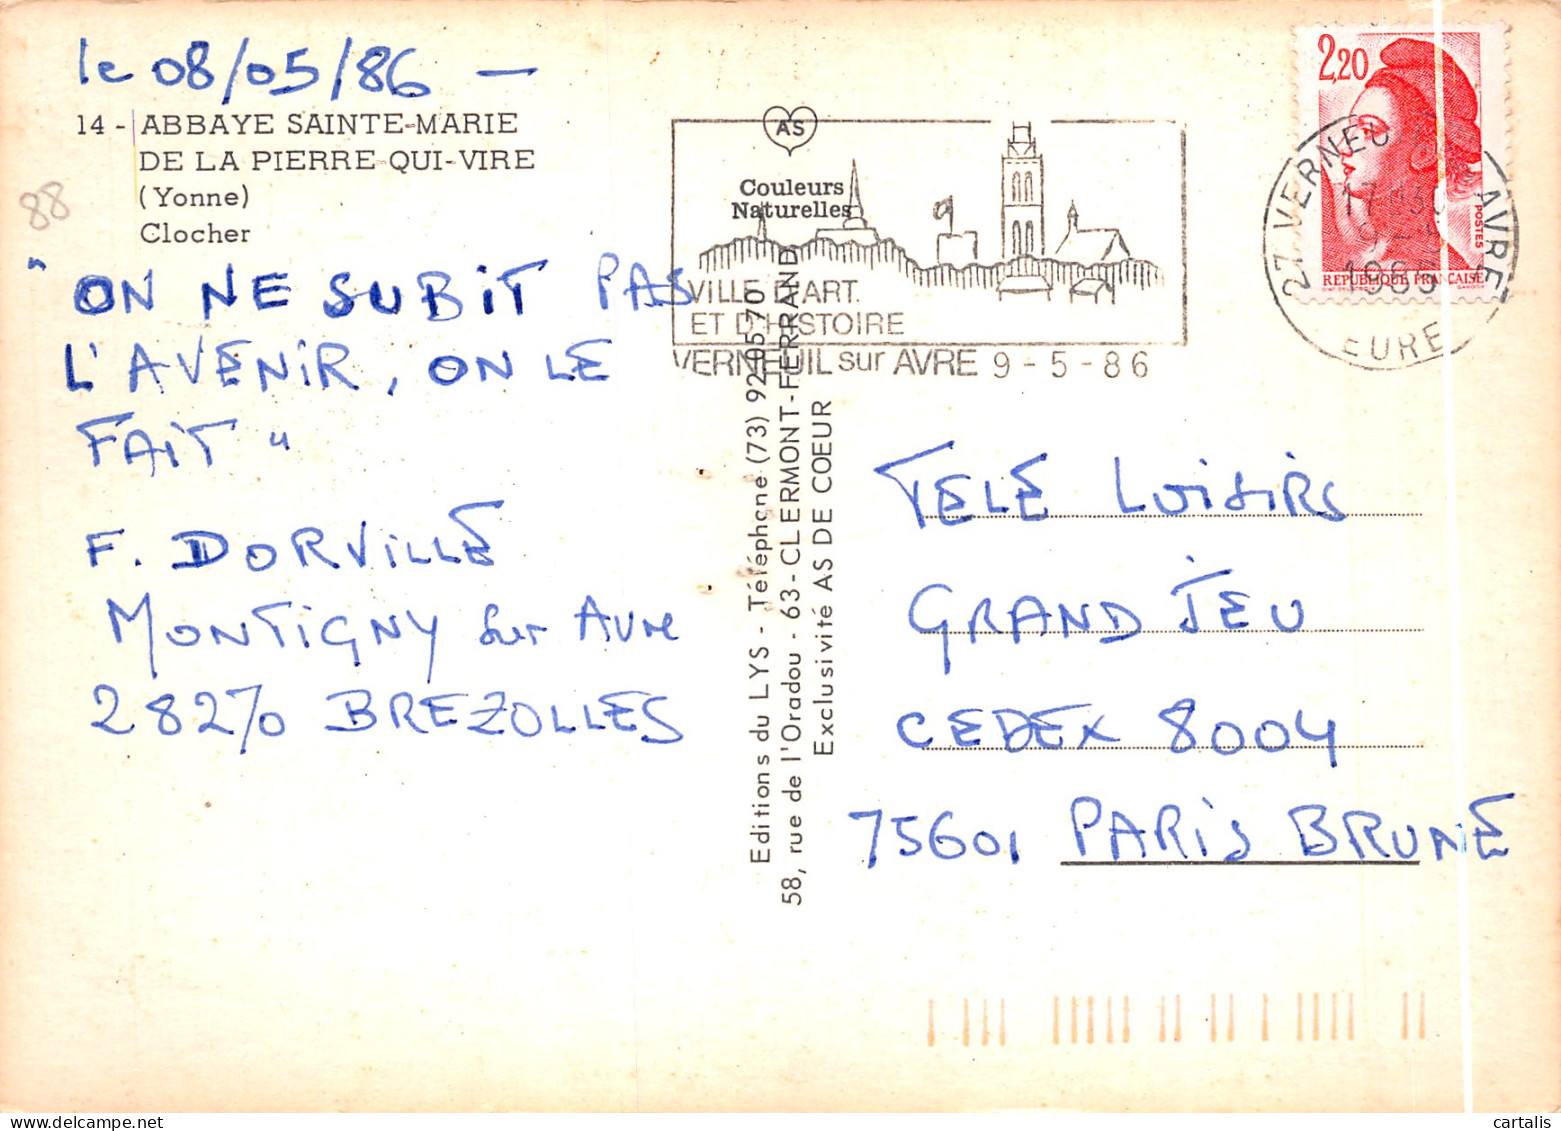 le 08/05/86 —
14 - ABBAYE SAINTE-MARIE
DE LA PIERRE-QUI-VIRE
(Yonne)
Clocher
88
" ON NE SUBIT PAS
L'AVENIR, ON LE
FAIT "
F. DORVILLE
MONTIGNY sur AVRE
28270 BREZOLLES
AS
Couleurs
Naturelles
VILLE D'ART.
ET D'HISTOIRE
VERNEUIL sur AVRE 9 - 5 - 86
Editions du LYS - Téléphone (73) 92.05.70
58, rue de l'Oradou - 63-CLERMONT-FERRAND
Exclusivité AS DE COEUR
2,20
POSTES
REPUBLIQUE FRANÇAISE
27 VERNEUIL AVRE
EURE
TELE LOISIRS
GRAND JEU
CEDEX 8004
75601 PARIS BRUNE
cartalis